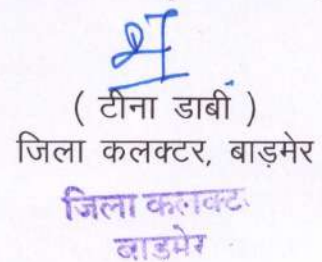 ( टीना डाबी )
जिला कलक्टर, बाड़मेर
जिला कलक्ट
बाडमेर